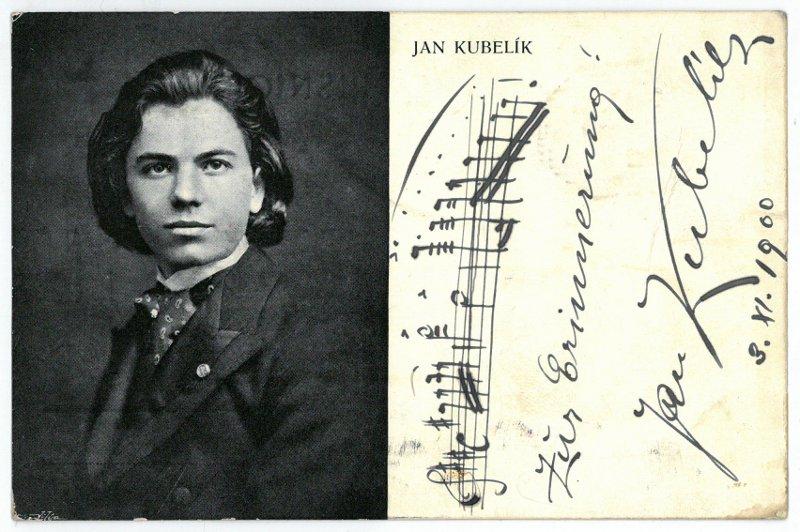 JAN KUBELÍK
Zur Erinnerung!
Jan Kubelík
3. XI. 1900